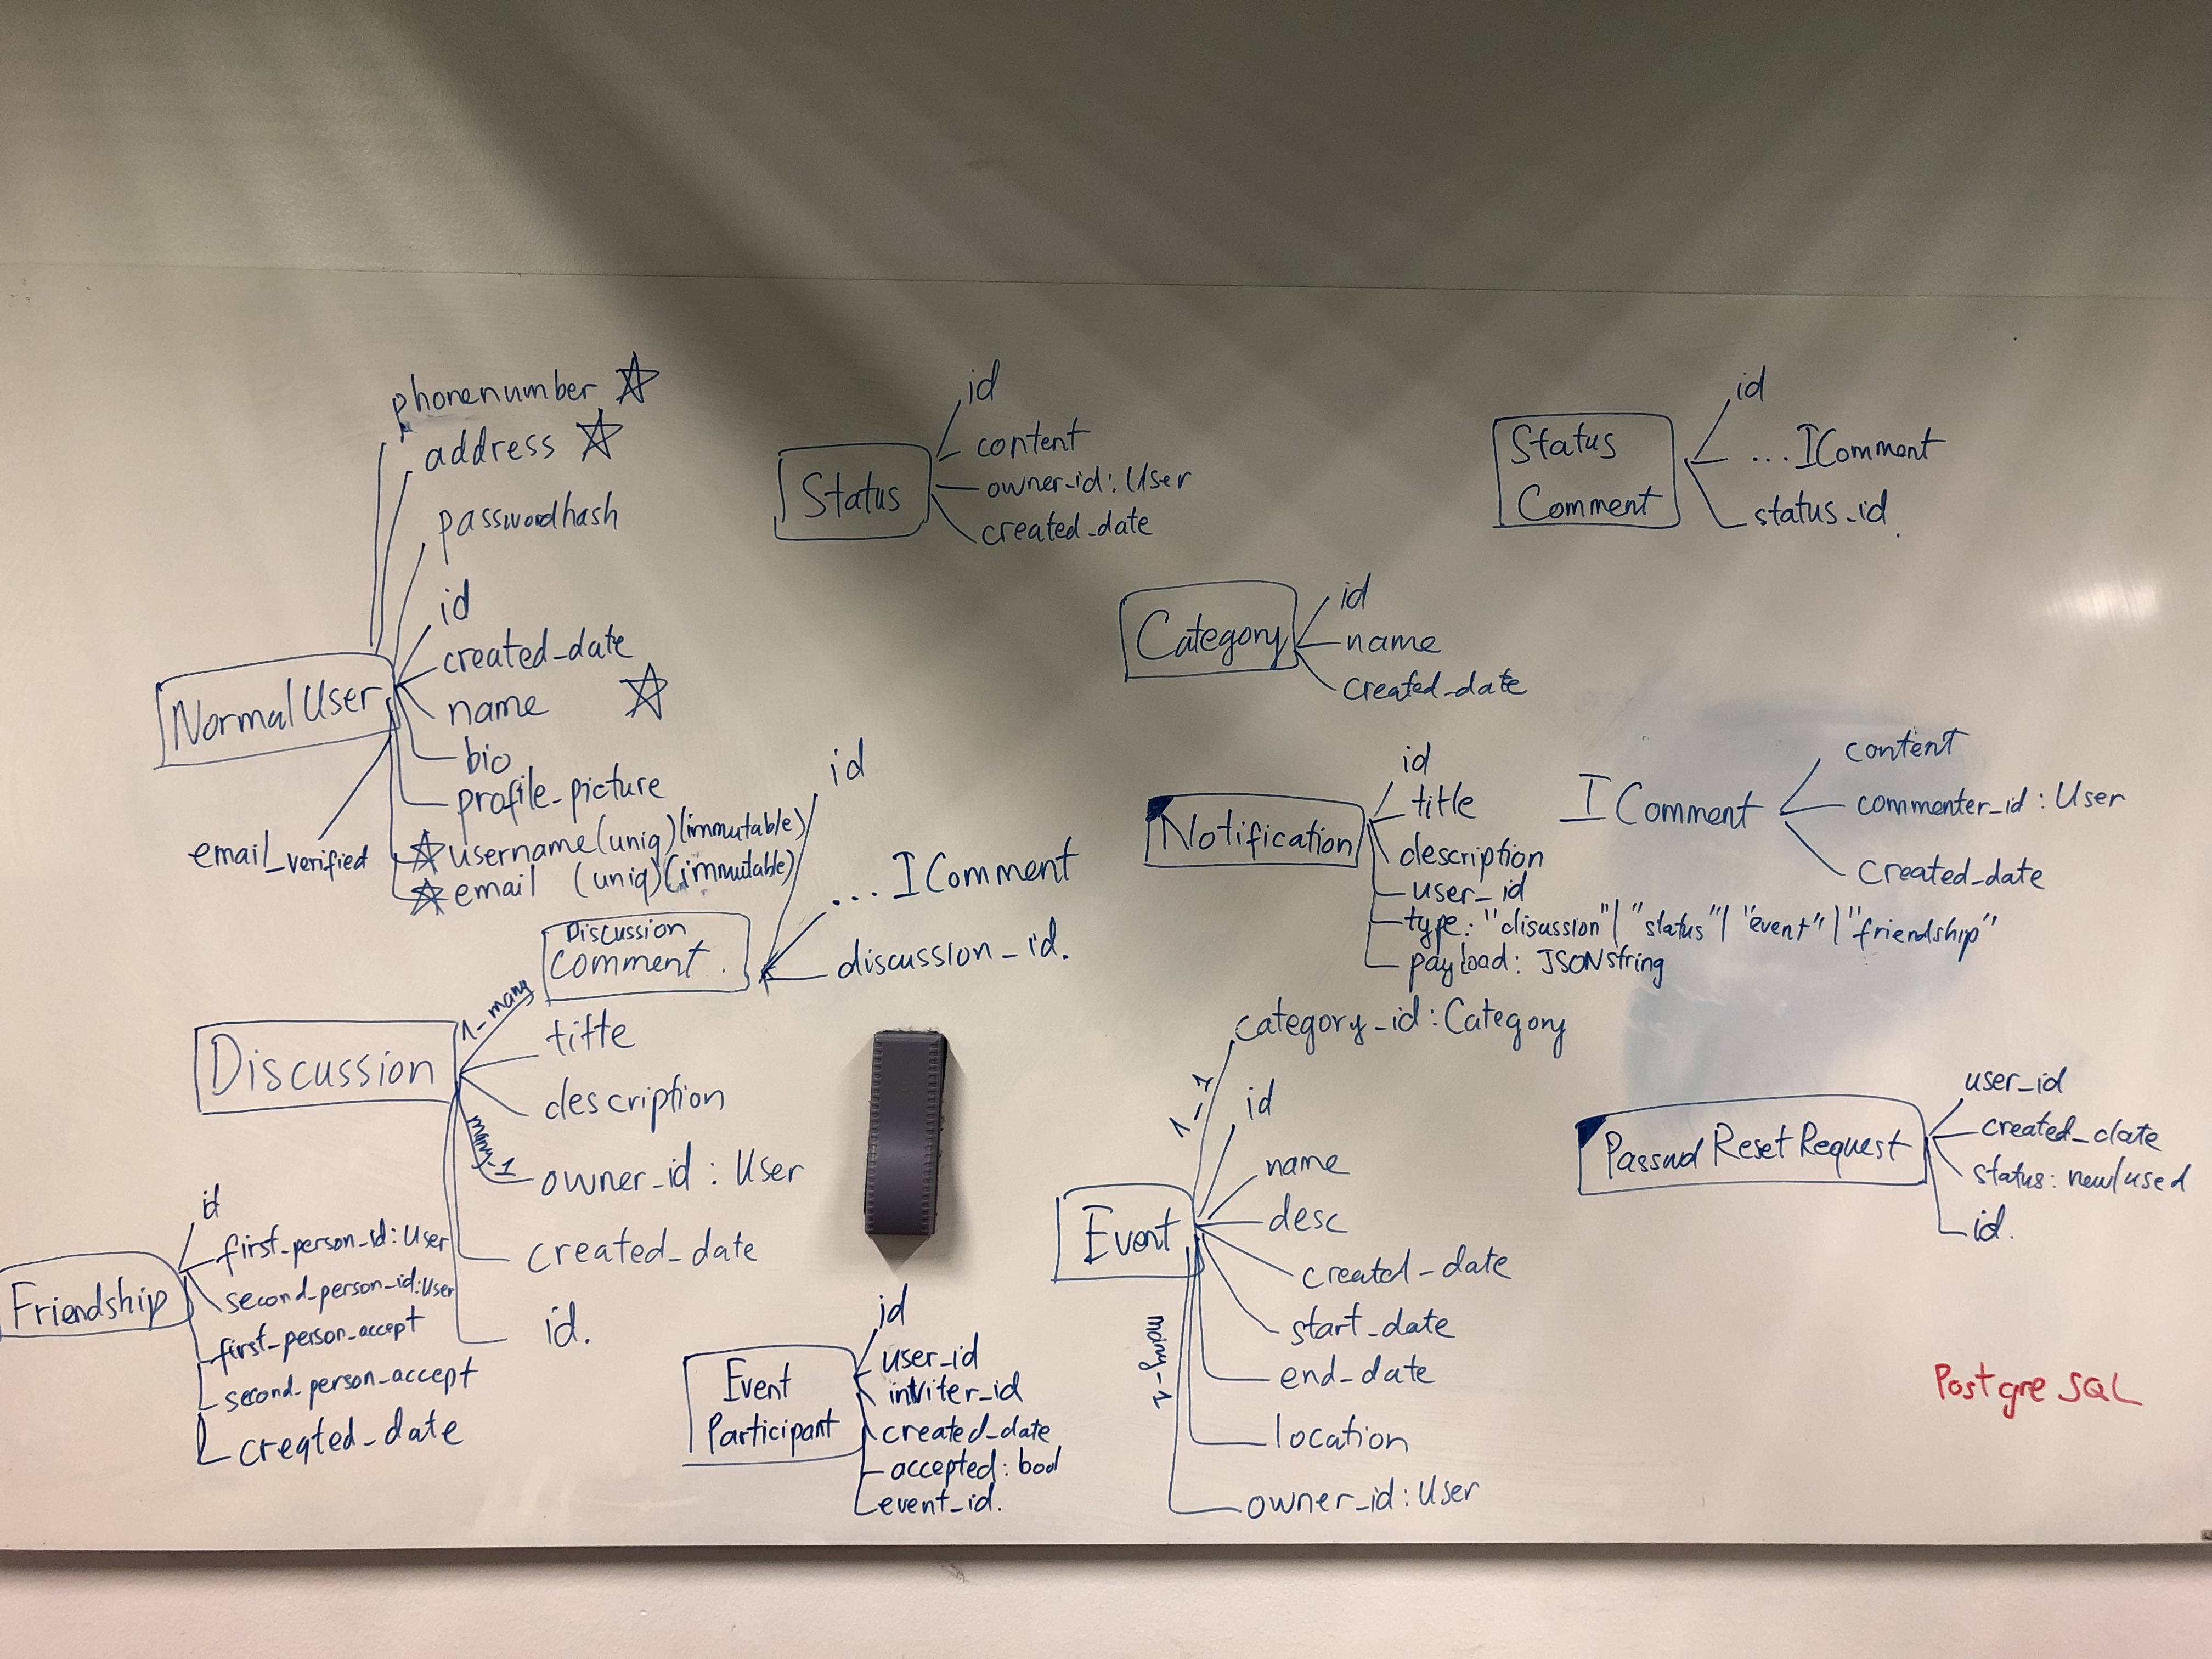 phonenumber
address
passwordhash
id
created_date
name
bio
profile_picture
username (uniq) (immutable)
email (uniq) (immutable)
email_verified
NormalUser
Status
id
content
owner_id: User
created_date
Status
Comment
id
... IComment
status_id.
Category
id
name
created_date
Notification
id
title
description
user_id
type: "disussion" | "status" | "event" | "friendship"
payload: JSONstring
IComment
content
commenter_id: User
created_date
Discussion
Comment.
id
... IComment
discussion_id.
Discussion
1-many
title
description
many-1
owner_id: User
created_date
id.
Friendship
id
first_person_id: User
second_person_id: User
first_person_accept
second_person_accept
created_date
Event
Participant
id
user_id
inviter_id
created_date
accepted: bool
event_id.
Event
category_id: Category
1-1
id
name
desc
created_date
start_date
end_date
location
many-1
owner_id: User
Passwd Reset Request
user_id
created_date
status: new/used
id.
PostgreSQL